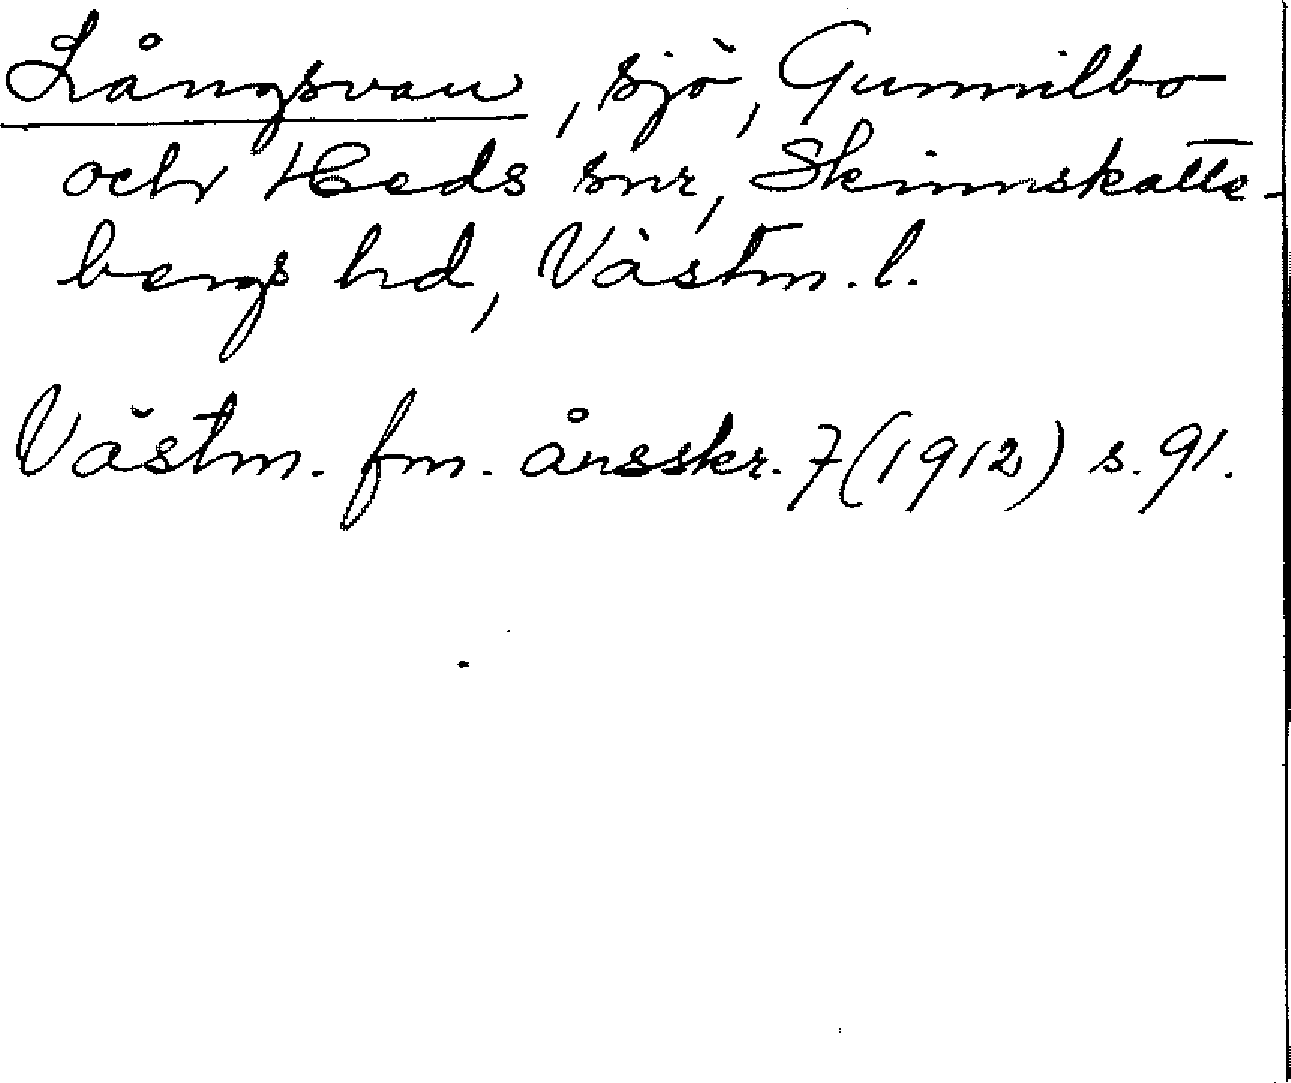 Långsvan, sjö, Gunnilbo
och Heds snr, Skinnskatte-
bergs hd, Västm. l.
Västm. fm. årsskr. 7 (1912) s. 91.